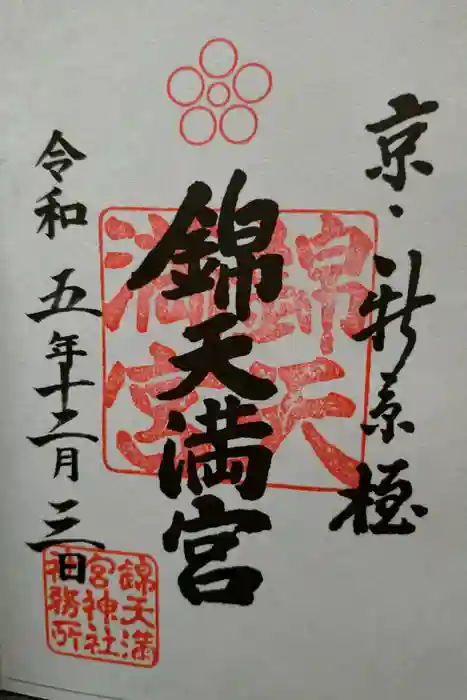 京・新京極
錦天満宮
錦天
満宮
令和五年十二月三日
錦天満
宮神社
神務所